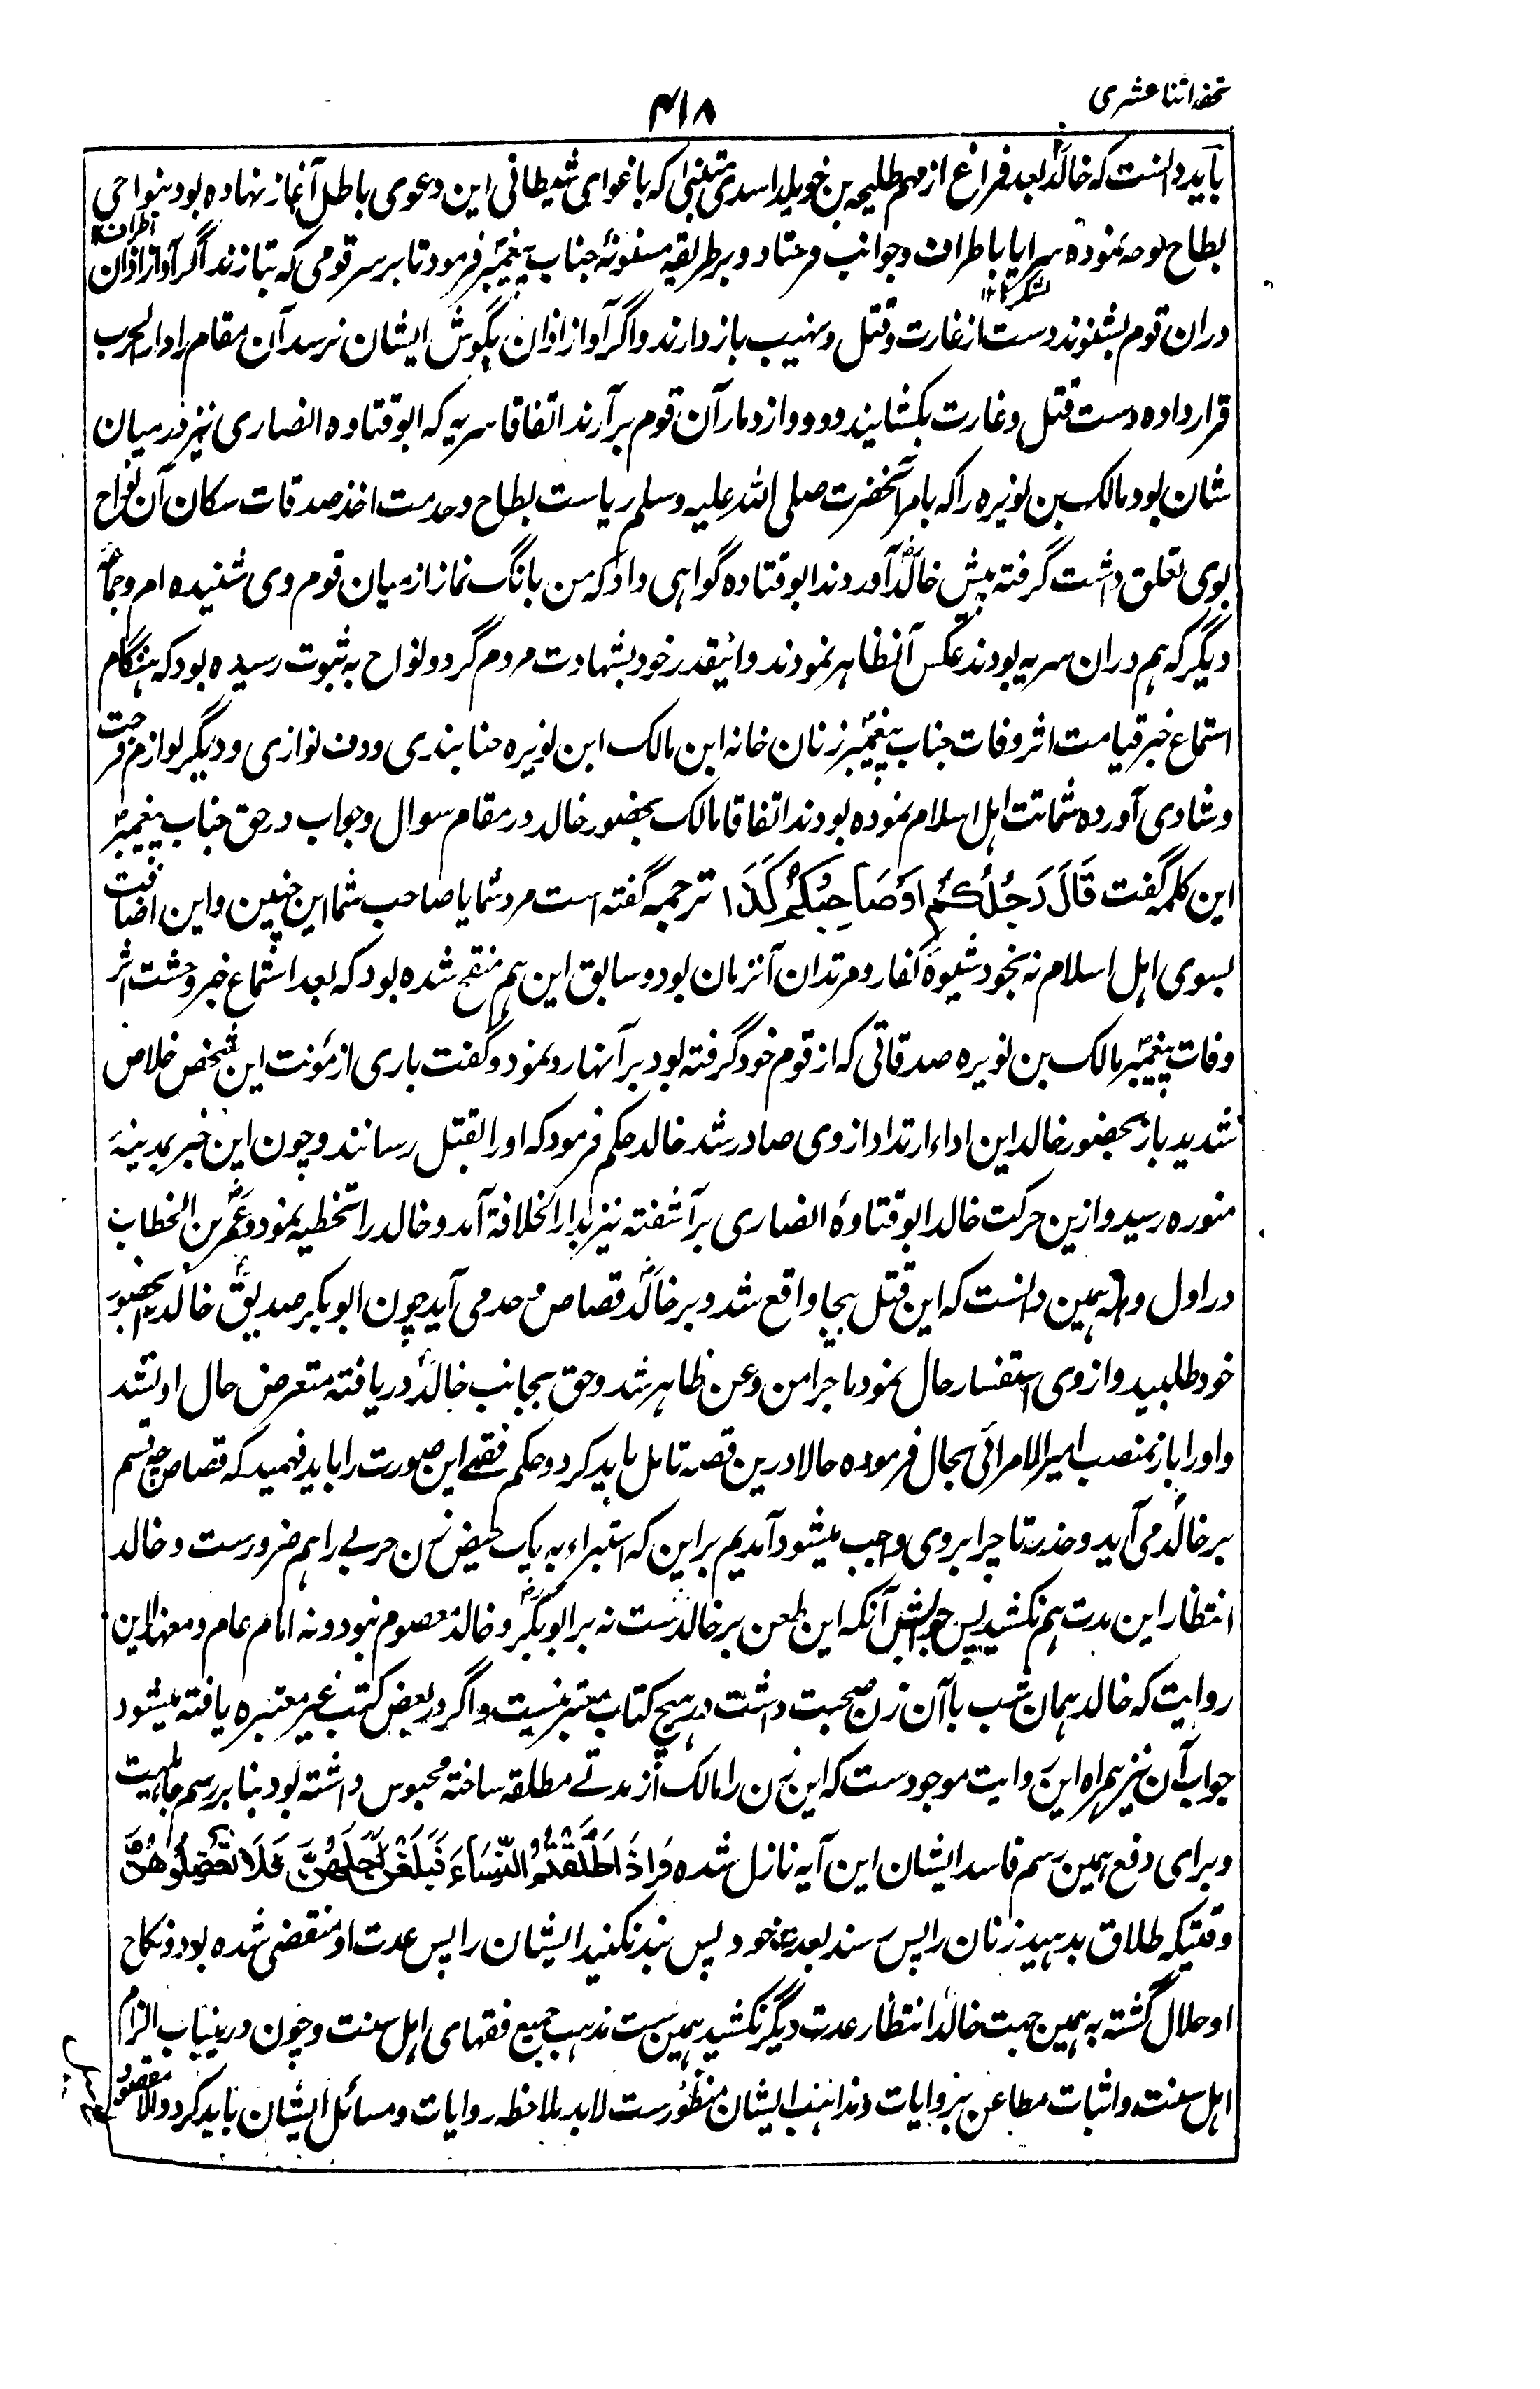 تحفہ اثنا عشری
۴۱۸
باید دانست که خالدؓ بعد فراغ از مهم طلیحه بن خویلد اسدی متنبی که باغوای شیطانی این دعوی باطل آغاز نهاده بود بنواحی
اطراف۱۲
بطاح توجه نموده سرایا باطراف و جوانب فرستاد و بر طریقه مسنونهٔ جناب پیغمبرؐ فرمود تا بر سر قومی که بتازند اگر آواز اذان
لشکرها ۱۲
دران قوم بشنوند دست از غارت و قتل و نهیب باز دارند و اگر آواز اذان بگوش ایشان نرسد آن مقام را دار الحرب
قرار داده دست قتل و غارت بکشایند و دود از دمار آن قوم برآرند اتفاقا سریه که ابو قتاده انصاری نیز در میان
شان بود مالک بن نویره را که بامر آنحضرت صلی الله علیه وسلم ریاست بطاح و خدمت اخذ صدقات سکان آن نواح
بوی تعلق داشت گرفته پیش خالدؓ آوردند ابو قتاده گواهی داد که من بانگ نماز از میان قوم وی شنیده ام و جماعهٔ
دیگر که هم دران سریه بودند عکس آن ظاهر نمودند و اینقدر خود بشهادت مردم گرد و نواح به ثبوت رسیده بود که هنگام
استماع خبر قیامت اثر وفات جناب پیغمبرؐ زنان خانه این مالک ابن نویره حنابندی و دف نوازی و دیگر لوازم فرحت
و شادی آورده شماتت اهل اسلام نموده بودند اتفاقا مالک بحضور خالد در مقام سوال و جواب در حق جناب پیغمبرؐ
این کلمه گفت قَالَ رَجُلُكُمْ اَوْ صَاحِبُكُمْ كَذَا ترجمه گفته است مرد شما یا صاحب شما این چنین و این اضافت
بسوی اهل اسلام نه بخود شیوهٔ کفار و مرتدان آنزمان بود و سابق این هم منقح شده بود که بعد استماع خبر وحشت اثر
وفات پیغمبرؐ مالک بن نویره صدقاتی که از قوم خود گرفته بود بر آنها رد نمود و گفت باری از مؤنت این شخص خلاص
شدید باز بحضور خالد این اداء ارتداد از وی صادر شد خالد حکم فرمود که او را بقتل رسانند و چون این خبر بمدینهٔ
منوره رسید و ازین حرکت خالد ابو قتادهٔ انصاری بر آشفته نیز بدار الخلافة آمد و خالد را تخطیه نمود و عمرؓ بن الخطاب
در اول وهله همین دانست که این قتل بیجا واقع شد و بر خالدؓ قصاص و حد می آید چون ابو بکر صدیقؓ خالدؓ را بحضور
خود طلبید و از وی استفسار حال نمود ماجرا من و عن ظاهر شد و حق بجانب خالدؓ دریافته متعرض حال او نشد
و او را باز بمنصب امیر الامرائی بحال فرموده حالا درین قصه تامل باید کرد و حکم فقهی این صورت را باید فهمید که قصاص چه قسم
بر خالدؓ می آید و حد زنا چرا بر وی واجب میشود آمدیم بر این که استبراء به یک حیض زن حربی را هم ضرورست و خالد
انتظار این مدت هم نکشید پس جوابش آنکه این طعن بر خالدست نه بر ابو بکرؓ و خالد معصوم نبود و نه امام عام و معهذا این
روایت که خالد همان شب با آن زن صحبت داشت در هیچ کتاب معتبر نیست و اگر در بعض کتب غیر معتبره یافته میشود
جواب آن نیز همراه این روایت موجودست که این زن را مالک از مدتے مطلقه ساخته محبوس داشته بود بنا بر رسم جاهلیت
و برای دفع همین رسم فاسد ایشان این آیه نازل شده وَاِذَا طَلَّقْتُمُ النِّسَاءَ فَبَلَغْنَ اَجَلَهُنَّ فَلَا تَعْضُلُوْهُنَّ
وقتیکه طلاق بدهید زنان را پس رسند بعدت خود پس بند نکنید ایشان را پس عدت او منقضی شده بود و نکاح
او حلال گشته به همین جهت خالدؓ انتظار عدت دیگر نکشید همین ست مذهب جمیع فقهای اهل سنت و چون درینباب الزام
اهل سنت و اثبات مطاعن بروایات و مذاهب ایشان منظورست لابد ملاحظه روایات و مسائل ایشان باید کرد والا مقصود